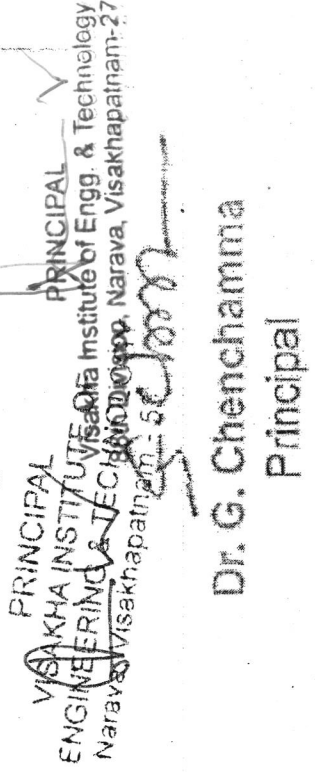 PRINCIPAL
VISAKHA INSTITUTE OF
ENGINEERING & TECHNOLOGY
Narava, Visakhapatnam - 5
PRINCIPAL
Visakha Institute of Engg. & Technology
88th Division, Narava, Visakhapatnam-27
Dr. G. Chenchamma
Principal